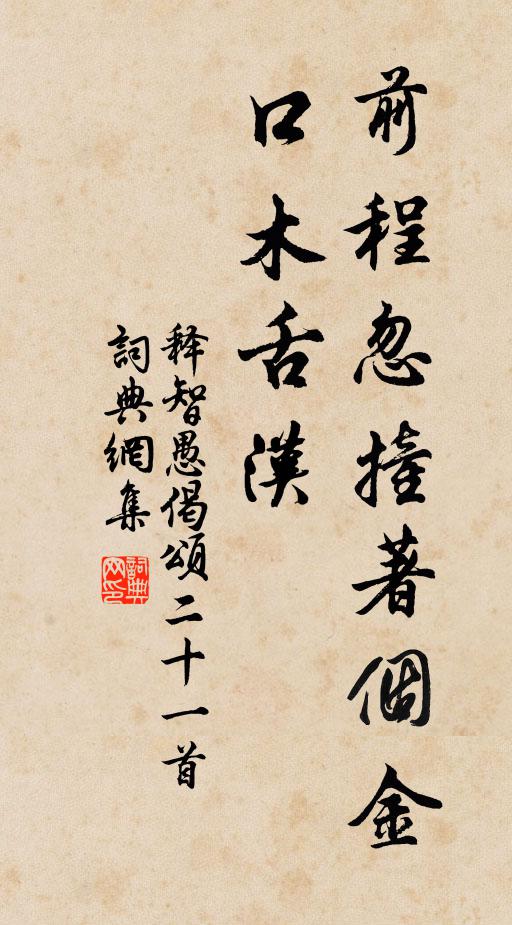 前程忽撞著個金
口木舌漢
释智愚偈頌二十一首
詞典網集
詞典網印